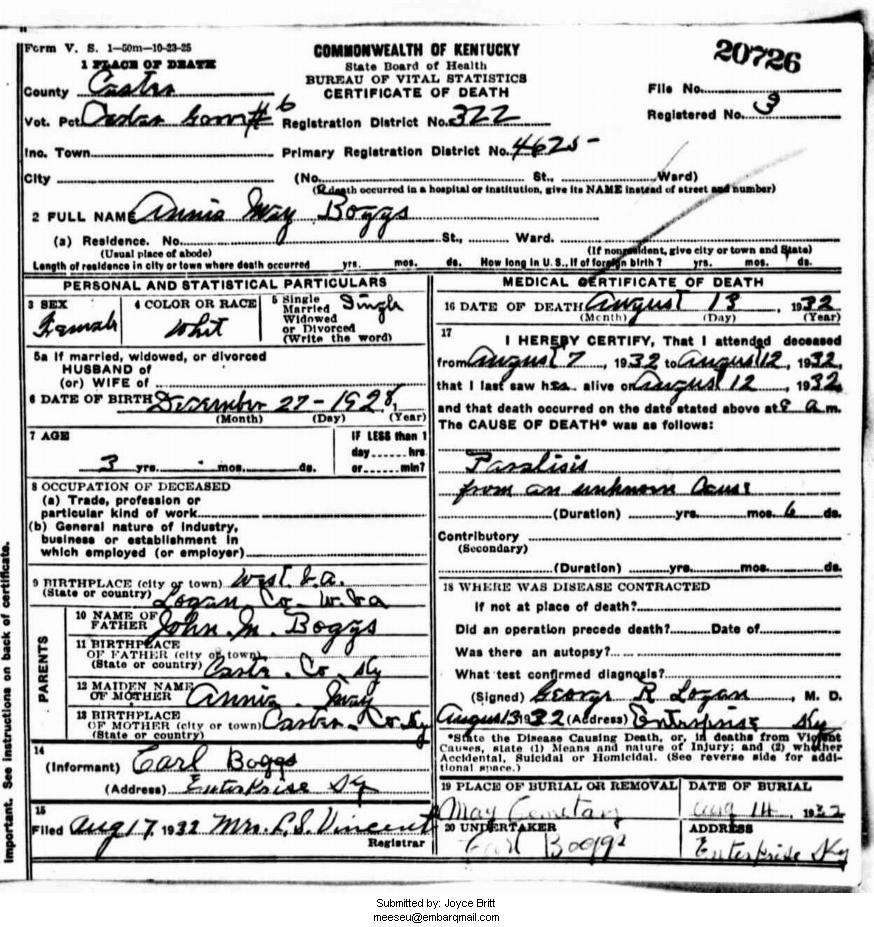 Form V. S. 1-50m-10-23-25
COMMONWEALTH OF KENTUCKY
State Board of Health
BUREAU OF VITAL STATISTICS
CERTIFICATE OF DEATH
20726
1 PLACE OF DEATH
County Carter
Vot. Pct. #6
Registration District No. 322
File No.
Registered No. 3
Inc. Town
Primary Registration District No. 4625-
City (No. St., Ward)
(If death occurred in a hospital or institution, give its NAME instead of street and number)
2 FULL NAME Annia May Boggs
(a) Residence. No. St., Ward.
(Usual place of abode) (If nonresident, give city or town and State)
Length of residence in city or town where death occurred yrs. mos. ds. How long in U. S., if of foreign birth? yrs. mos. ds.
PERSONAL AND STATISTICAL PARTICULARS
3 SEX
Femal
4 COLOR OR RACE
Whit
5 Single Singl
Married
Widowed
or Divorced
(Write the word)
5a If married, widowed, or divorced
HUSBAND of
(or) WIFE of
6 DATE OF BIRTH December 27-1928,
(Month) (Day) (Year)
7 AGE
3 yrs. mos. ds.
IF LESS than 1
day hrs
or min?
8 OCCUPATION OF DECEASED
(a) Trade, profession or
particular kind of work
(b) General nature of industry,
business or establishment in
which employed (or employer)
9 BIRTHPLACE (city or town) West Va.
(State or country) Logan Co W. Va
PARENTS
10 NAME OF
FATHER John M. Boggs
11 BIRTHPLACE
OF FATHER (city or town)
(State or country) Carter Co. Ky
12 MAIDEN NAME
OF MOTHER Annia May
13 BIRTHPLACE
OF MOTHER (city or town) Carter Co Ky
(State or country)
14
(Informant) Carl Boggs
(Address) Enterprise Ky
15
Filed Aug 17, 1932 Mrs. L. S. Vincent
Registrar
MEDICAL CERTIFICATE OF DEATH
16 DATE OF DEATH August 13, 1932
(Month) (Day) (Year)
17
I HEREBY CERTIFY, That I attended deceased
from August 7, 1932 to August 12, 1932,
that I last saw her alive on August 12, 1932,
and that death occurred on the date stated above at 8 a m.
The CAUSE OF DEATH* was as follows:
Paralisis
from an unknown Caus
(Duration) yrs. mos. 6 ds.
Contributory
(Secondary)
(Duration) yrs. mos. ds.
18 WHERE WAS DISEASE CONTRACTED
If not at place of death?
Did an operation precede death? Date of
Was there an autopsy?
What test confirmed diagnosis?
(Signed) George R Logan, M. D.
August 13 1932 (Address) Enterprise Ky
*State the Disease Causing Death, or, in deaths from Violent
Causes, state (1) Means and nature of Injury; and (2) whether
Accidental, Suicidal or Homicidal. (See reverse side for addi-
tional space.)
19 PLACE OF BURIAL OR REMOVAL
May Cemetary
DATE OF BURIAL
Aug 14, 1932
20 UNDERTAKER
Earl Boggs
ADDRESS
Enterprise Ky
Important. See instructions on back of certificate.
Submitted by: Joyce Britt
meeseu@embarqmail.com